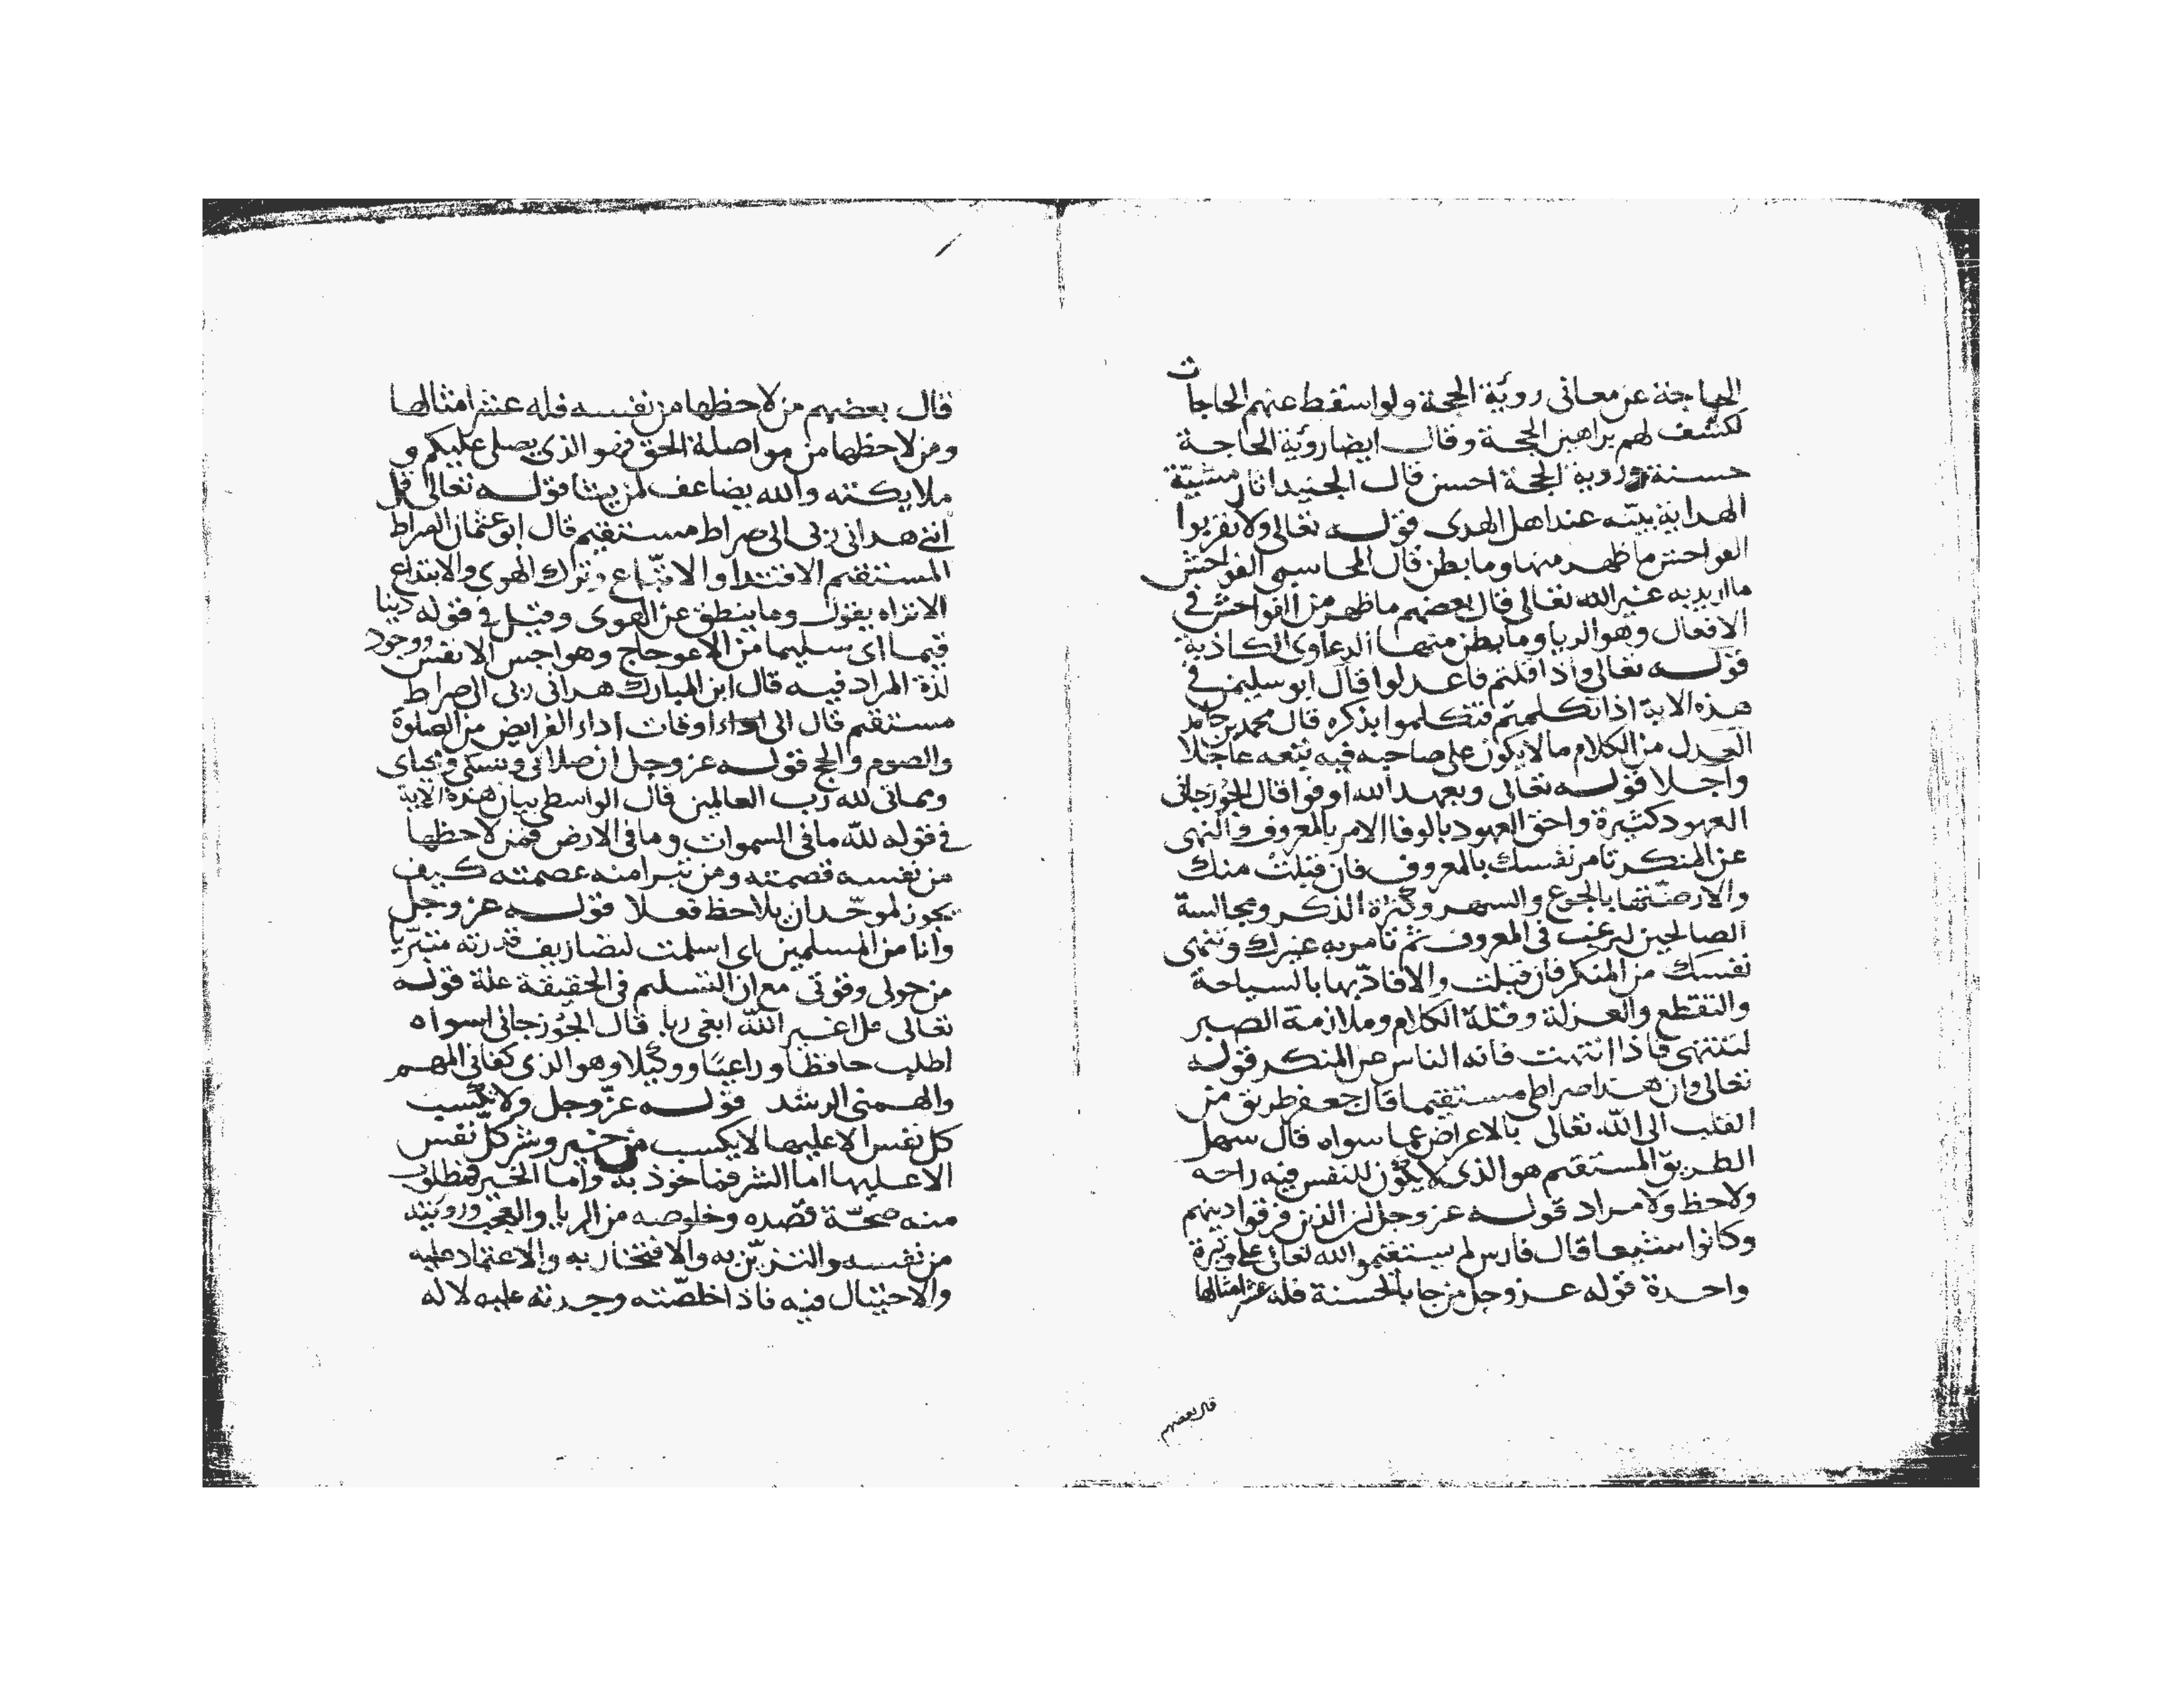 الحاجة عن معاني روية الحجة ولو اسقط عنهم الحاجات
لكشف لهم براهين الحجة وقال ايضا روية الحاجة
حسنة وروية الحجة احسن قال الجنيد انار مشية
الهداية بينه عند اهل الهدى قوله تعالى ولا تقربوا
الفواحش ما ظهر منها وما بطن قال المحاسبي الفواحش
ما اريد به غير الله تعالى قال بعضهم ما ظهر من الفواحش في
الافعال وهو الريا وما بطن منها الدعاوى الكاذبة
قوله تعالى واذا قلتم فاعدلوا قال ابو سليمن في
هذه الاية اذا تكلمتم فتكلموا بذكره قال محمد بن حامد
العدل من الكلام ما لا يكون على صاحبه فيه تبعه عاجلا
واجلا قوله تعالى وبعهد الله اوفوا قال الجوزجاني
العهود كثيرة واحق العهود بالوفا الامر بالمعروف والنهى
عن المنكر تامر نفسك بالمعروف فان قبلت منك
والا رضتها بالجوع والسهر وكثرة الذكر ومجالسة
الصالحين لترغب في المعروف ثم تامر به غيرك وتنهى
نفسك من المنكر فان قبلت والا فادبها بالسياحة
والتقطع والعزلة وقلة الكلام وملازمة الصبر
لتنتهى فاذا انتهت فانه الناس عن المنكر قوله
تعالى وان هذا صراطى مستقيما قال جعفر طريق من
القلب الى الله تعالى بالاعراض عما سواه قال سهل
الطريق المستقيم هو الذى لا يكون للنفس فيه راحه
ولا حظ ولا مراد قوله عز وجل ان الذين فرقوا دينهم
وكانوا شيعا قال فارس لم يستقيموا لله تعالى على وتيرة
واحدة قوله عز وجل من جا بالحسنة فله عشر امثالها
قال بعضهم
قال بعضهم من لاحظها من نفسه فله عشر امثالها
ومن لاحظها من مواصلة الحق فهو الذى يصلى عليكم و
ملايكته والله يضاعف لمن يشا قوله تعالى قل
اننى هدانى ربى الى صراط مستقيم قال ابو عثمان الصراط
المستقيم الاقتدا والاتباع وترك الهوى والابتداع
الا تراه يقول وما ينطق عن الهوى وقيل في قوله دينا
قيما اى سليما من الاعوجاج وهواجس الانفس ووجود
لذة المراد فيه قال ابن المبارك هدانى ربى الى صراط
مستقيم قال الى اداء اوقات اداء الفرايض من الصلوة
والصوم والحج قوله عز وجل ان صلاتى ونسكى ومحياى
ومماتى لله رب العالمين قال الواسطى بيان هذه الاية
في قوله لله ما في السموات وما في الارض فمن لاحظها
من نفسه قصمته ومن تبرا منه عصمته كيف
يجوز لموحد ان يلاحظ فعلا قوله عز وجل
وانا من المسلمين اى اسلمت لتصاريف قدرته متبريا
من حولى وقوتى مع ان التسليم في الحقيقة علة قوله
تعالى قل اغير الله ابغى ربا قال الجوزجانى اسواه
اطلب حافظا وراعيا ووكيلا وهو الذى كفانى المهم
والهمنى الرشد قوله عز وجل ولا تكسب
كل نفس الا عليها لا يكسب من خير وشر كل نفس
الا عليها اما الشر فماخوذ به واما الخير فمطلوب
منه صحة قصده وخلوصه من الريا والعجب ورويته
من نفسه والتزين به والافتخار به والاعتماد عليه
والاحتيال فيه فاذا خلصته وجدته عليه لا له